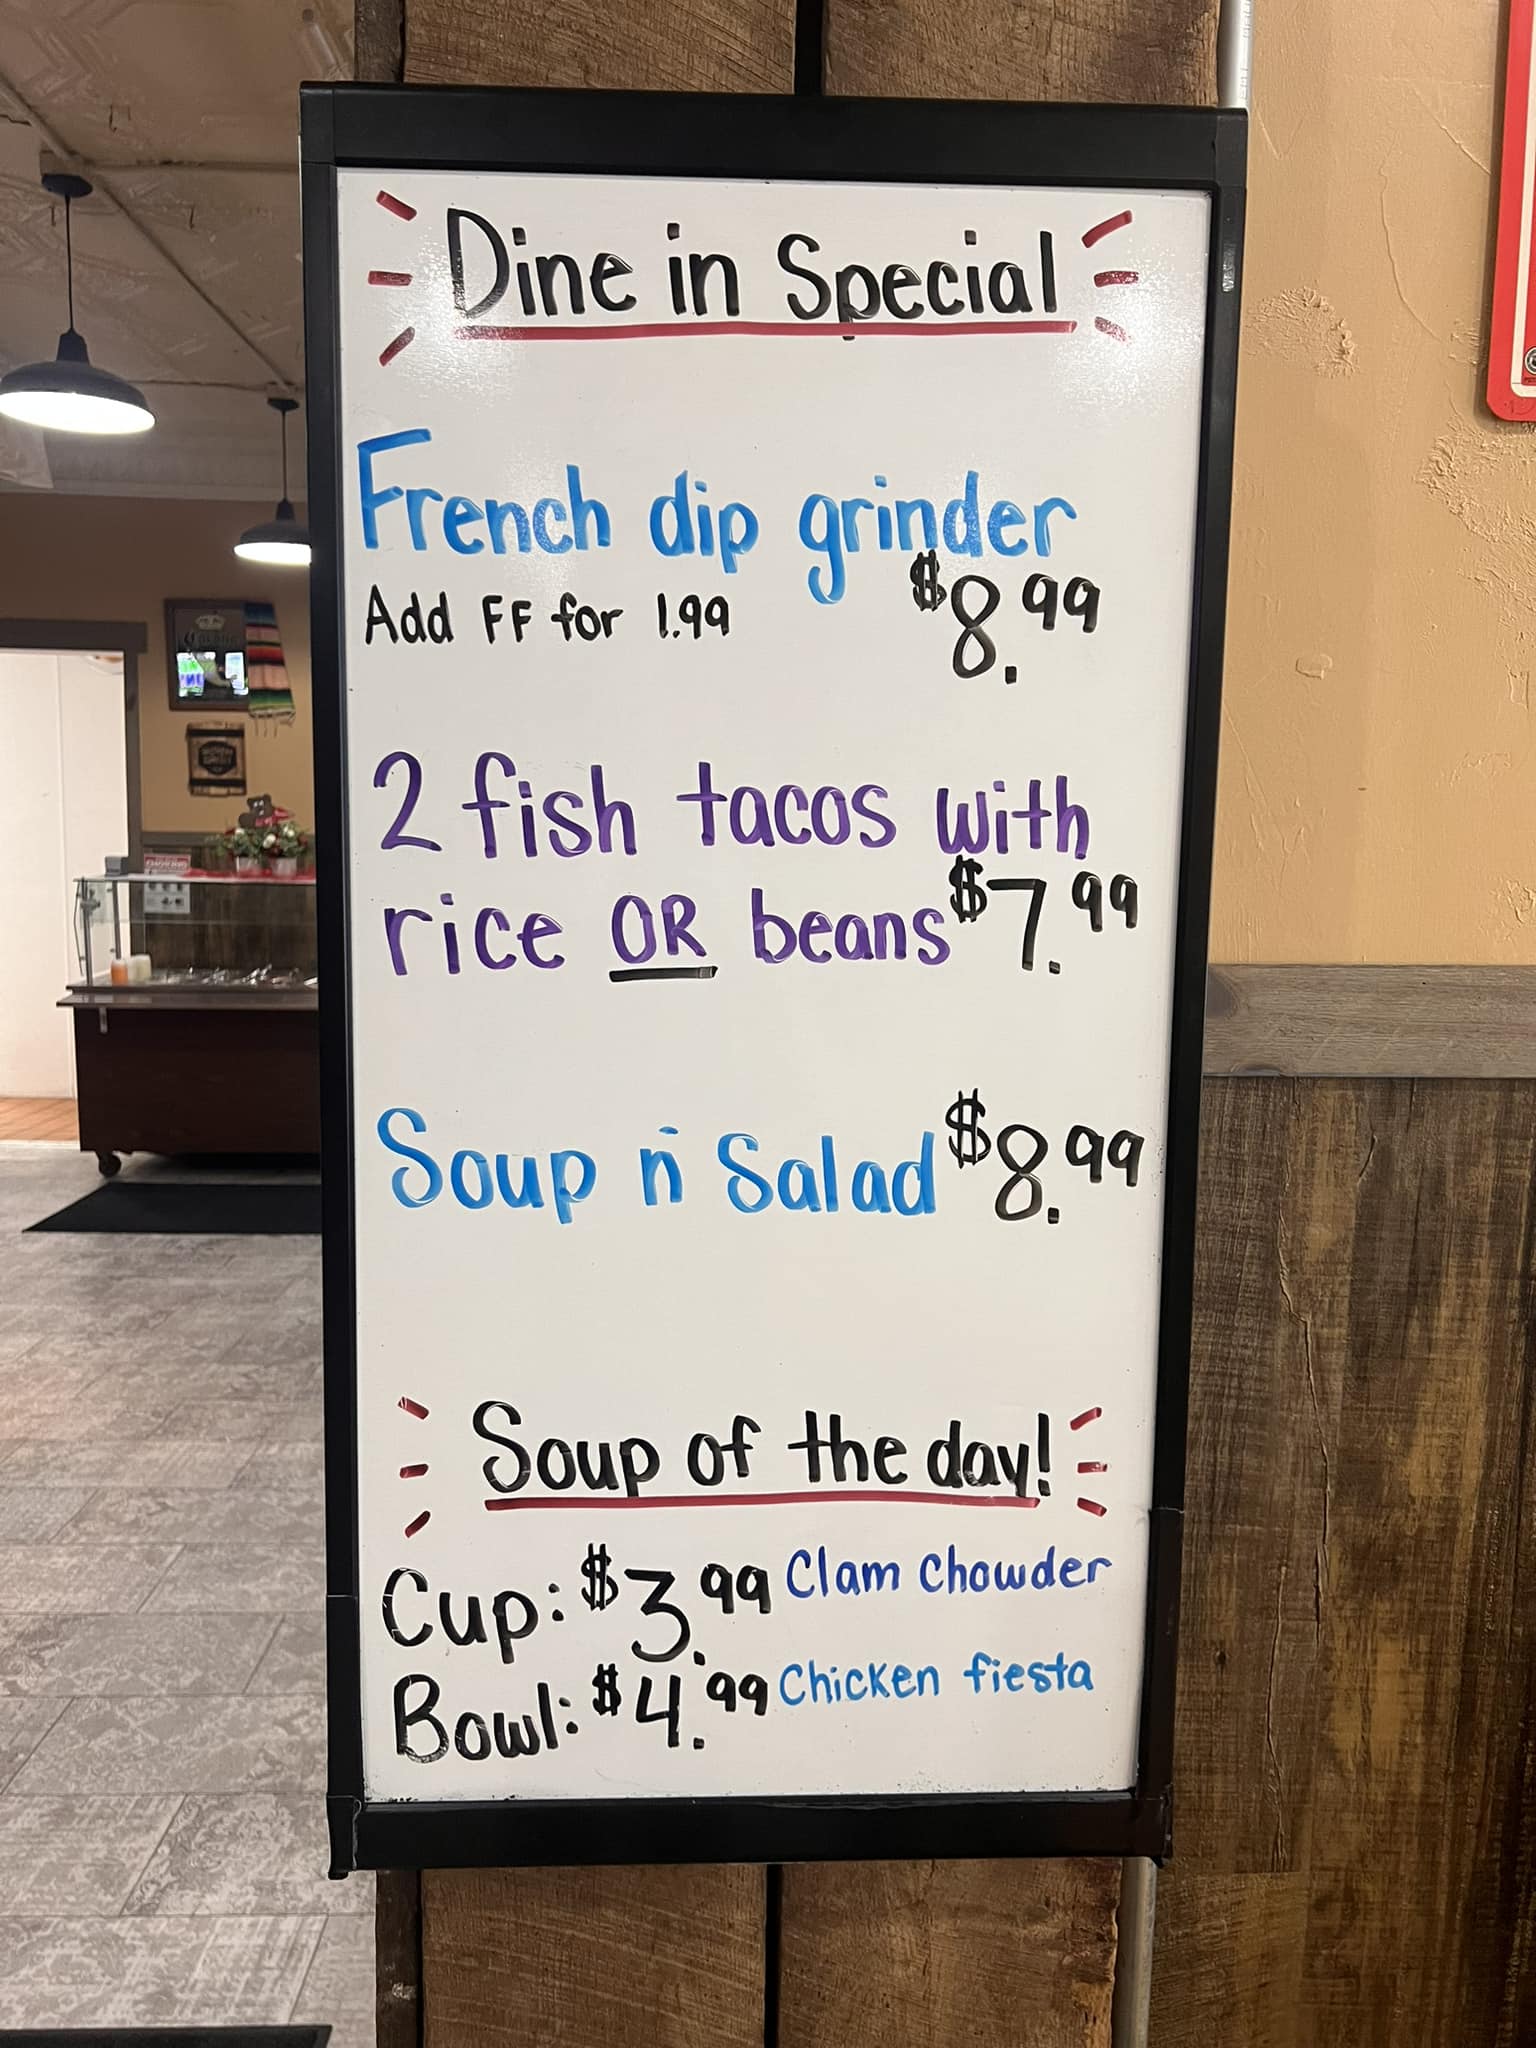 Dine in Special
French dip grinder
Add FF for 1.99 $8.99
2 fish tacos with
rice OR beans $7.99
Soup n Salad $8.99
Soup of the day!
Cup: $3.99 Clam Chowder
Bowl: $4.99 Chicken fiesta